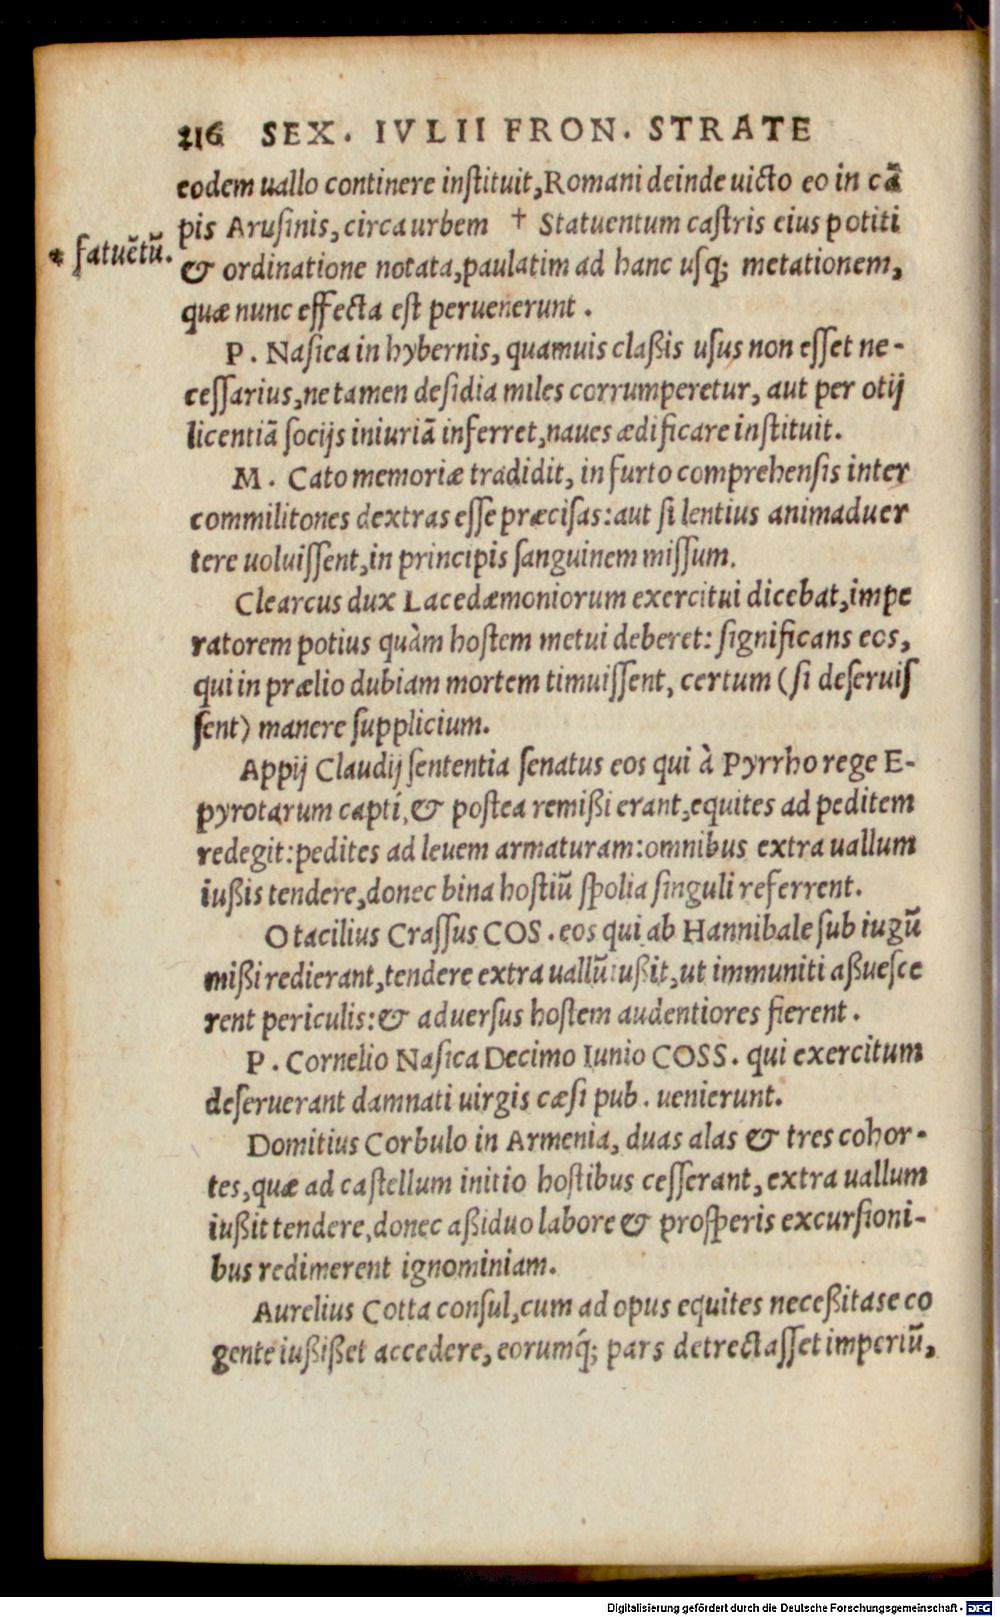 216 SEX. IVLII FRON. STRATE
eodem uallo continere inſtituit, Romani deinde uicto eo in cā
pis Aruſinis, circa urbem † Statuentum caſtris eius potiti
* fatuētū.
& ordinatione notata, paulatim ad hanc uſq; metationem,
quæ nunc effecta eſt peruenerunt.
P. Naſica in hybernis, quamuis claßis uſus non eſſet ne-
ceſſarius, ne tamen deſidia miles corrumperetur, aut per otij
licentiā ſocijs iniuriā inferret, naues ædificare inſtituit.
M. Cato memoriæ tradidit, in furto comprehenſis inter
commilitones dextras eſſe præciſas: aut ſi lentius animaduer
tere uoluiſſent, in principis ſanguinem miſſum.
Clearcus dux Lacedæmoniorum exercitui dicebat, impe
ratorem potius quàm hoſtem metui deberet: ſignificans eos,
qui in prælio dubiam mortem timuiſſent, certum (ſi deſeruiſ
ſent) manere ſupplicium.
Appij Claudij ſententia ſenatus eos qui à Pyrrho rege E-
pyrotarum capti, & poſtea remißi erant, equites ad peditem
redegit: pedites ad leuem armaturam: omnibus extra uallum
iußis tendere, donec bina hoſtiū ſpolia ſinguli referrent.
Otacilius Craſſus COS. eos qui ab Hannibale ſub iugū
mißi redierant, tendere extra uallū iußit, ut immuniti aßueſce
rent periculis: & aduerſus hoſtem audentiores fierent.
P. Cornelio Naſica Decimo Iunio COSS. qui exercitum
deſeruerant damnati uirgis cæſi pub. uenierunt.
Domitius Corbulo in Armenia, duas alas & tres cohor-
tes, quæ ad caſtellum initio hoſtibus ceſſerant, extra uallum
iußit tendere, donec aßiduo labore & proſperis excurſioni-
bus redimerent ignominiam.
Aurelius Cotta conſul, cum ad opus equites neceßitase co
gente iußißet accedere, eorumq́; pars detrectaſſet imperiū,
Digitalisierung gefördert durch die Deutsche Forschungsgemeinschaft - DFG